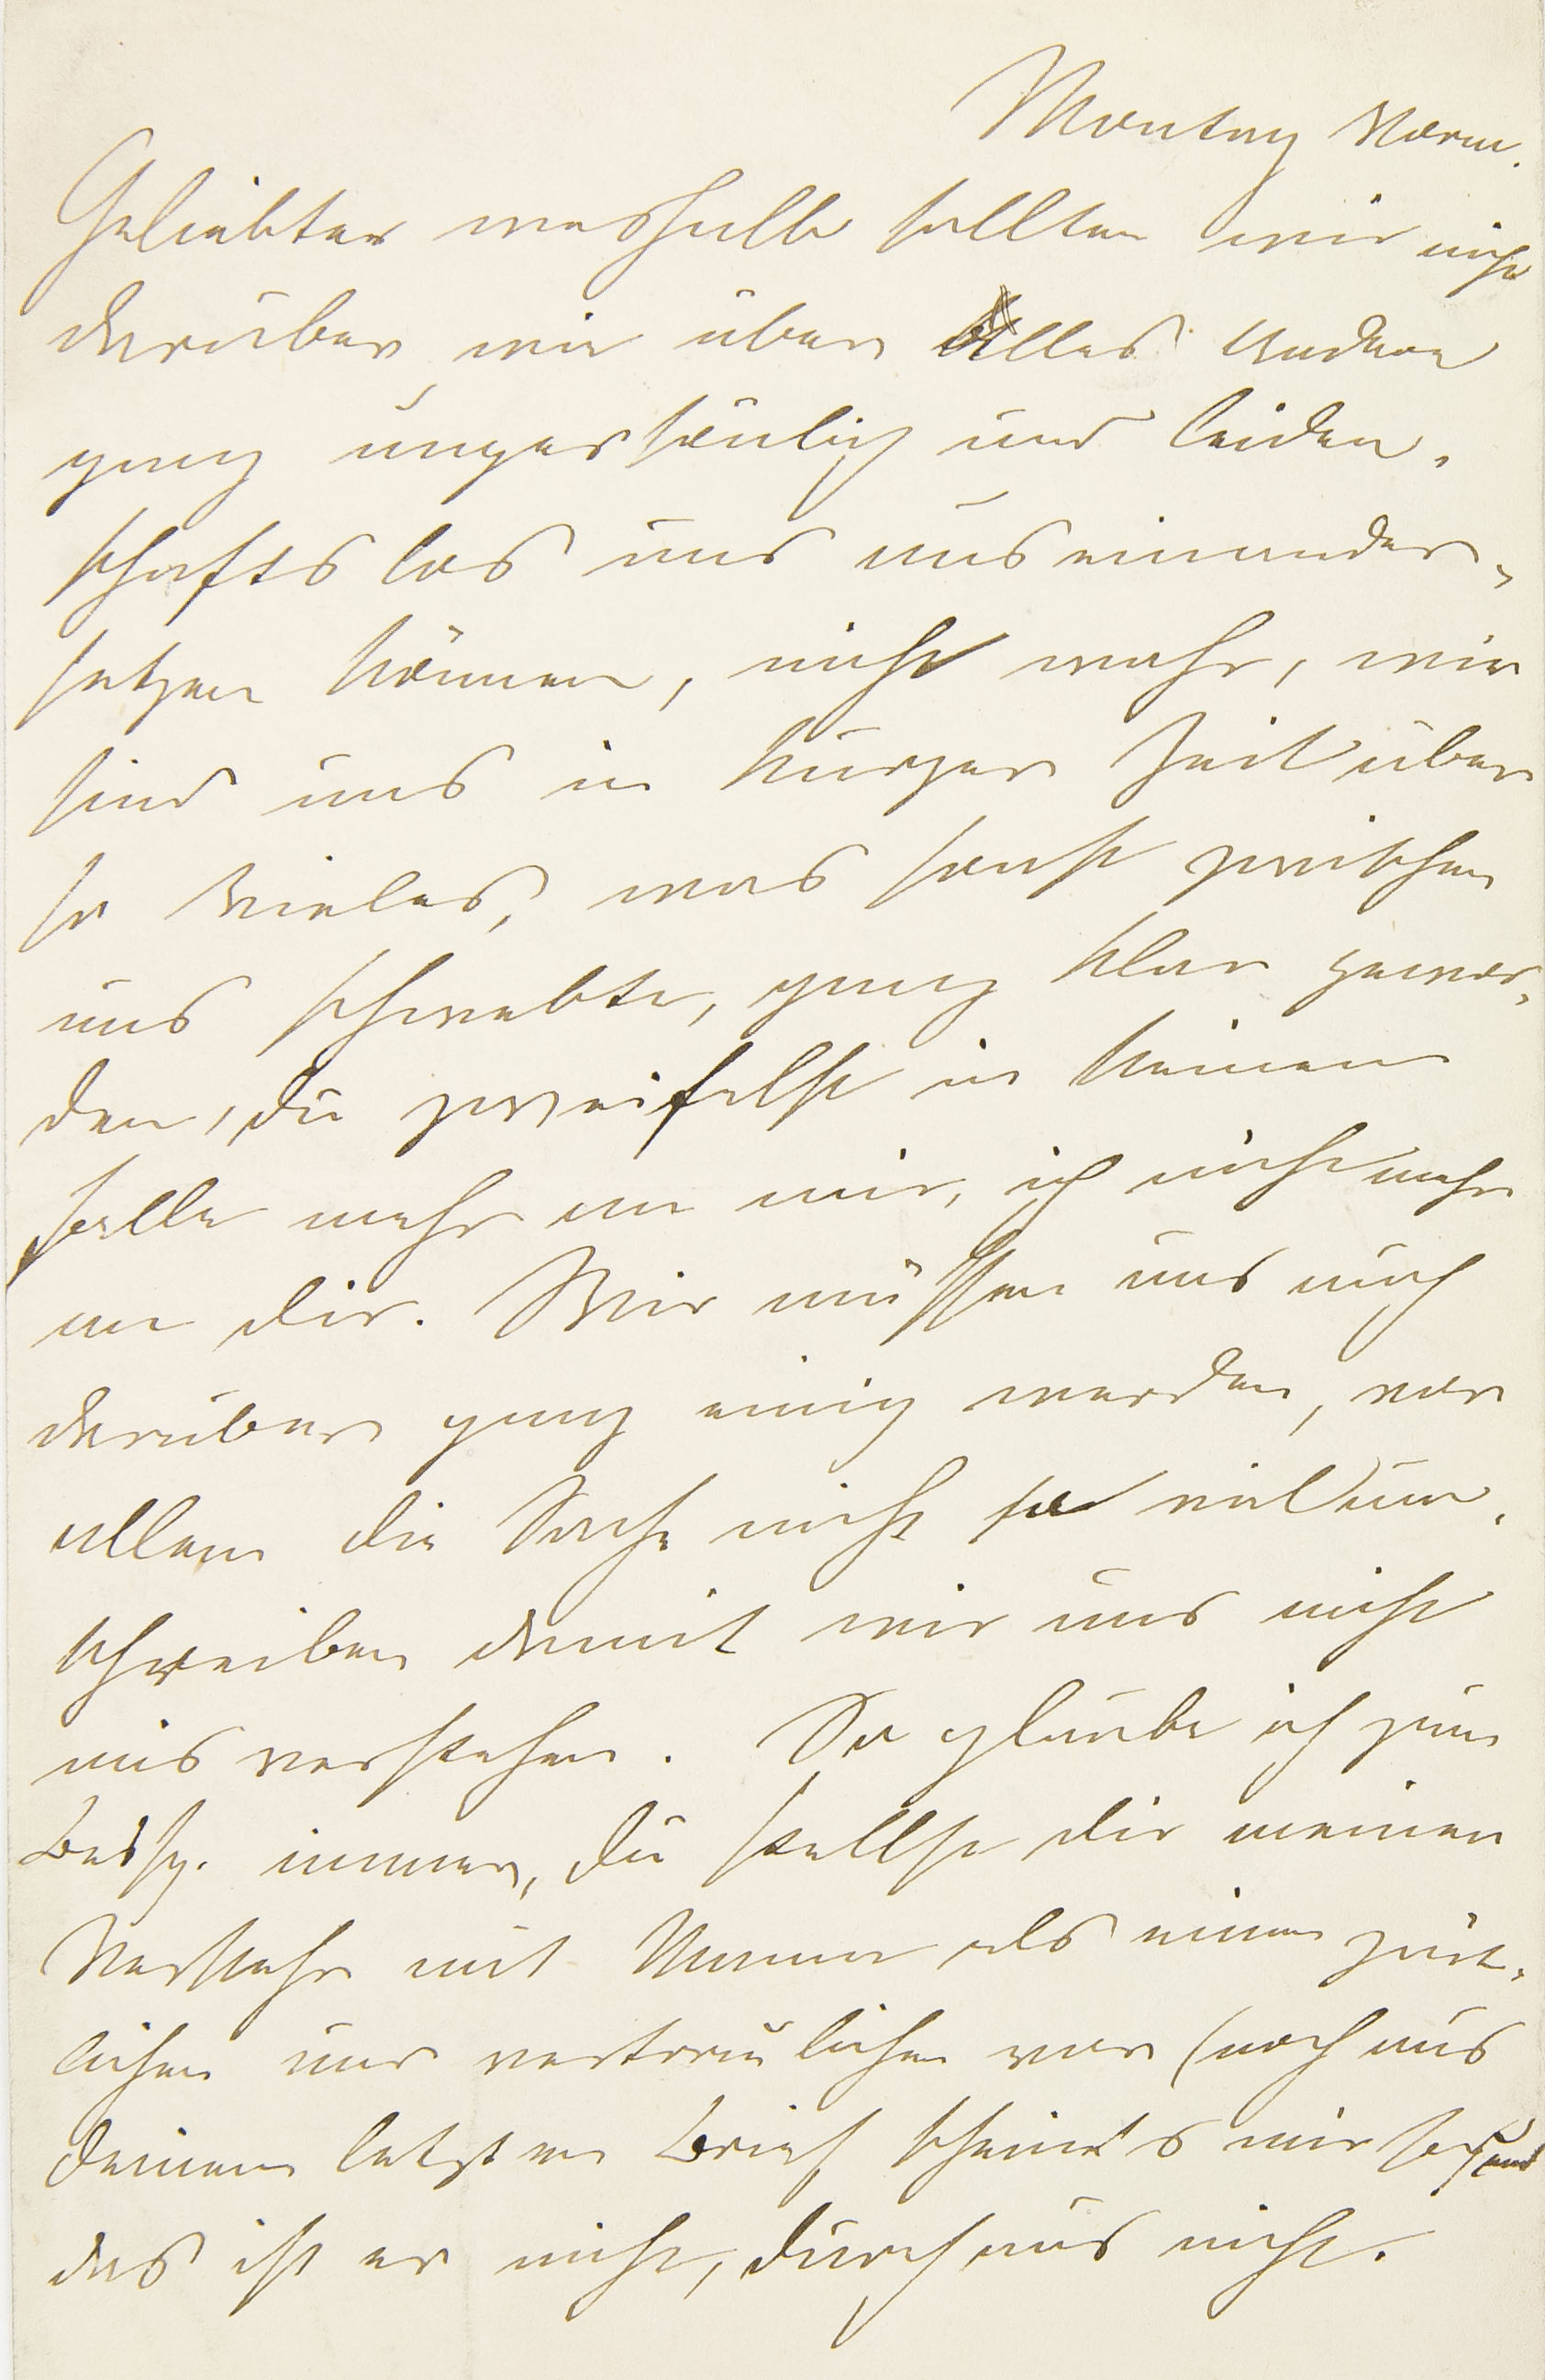 Montag Vorm.
Geliebter weshalb sollten wir nicht
darüber wie über Alles Andere
ganz unpersönlich und leiden-
schaftslos uns auseinander-
setzen können, nicht wahr, wir
sind uns in kurzer Zeit über
so Vieles, was sonst zwischen
uns schwebte, ganz klar gewor-
den, du zweifelst in keinem
Falle mehr an mir, ich nicht mehr
an dir. Wir müssen uns auch
darüber ganz einig werden, vor
allem die Sache nicht so viel um-
schreiben damit wir uns nicht
mis verstehen. So glaube ich zum
Beisp. immer, du stellst dir meinen
Verkehr mit als einen zärt-
lichen und vertraulichen vor (noch aus
deinem letzten Brief scheint's mir so) und
das ist er nicht, durchaus nicht.